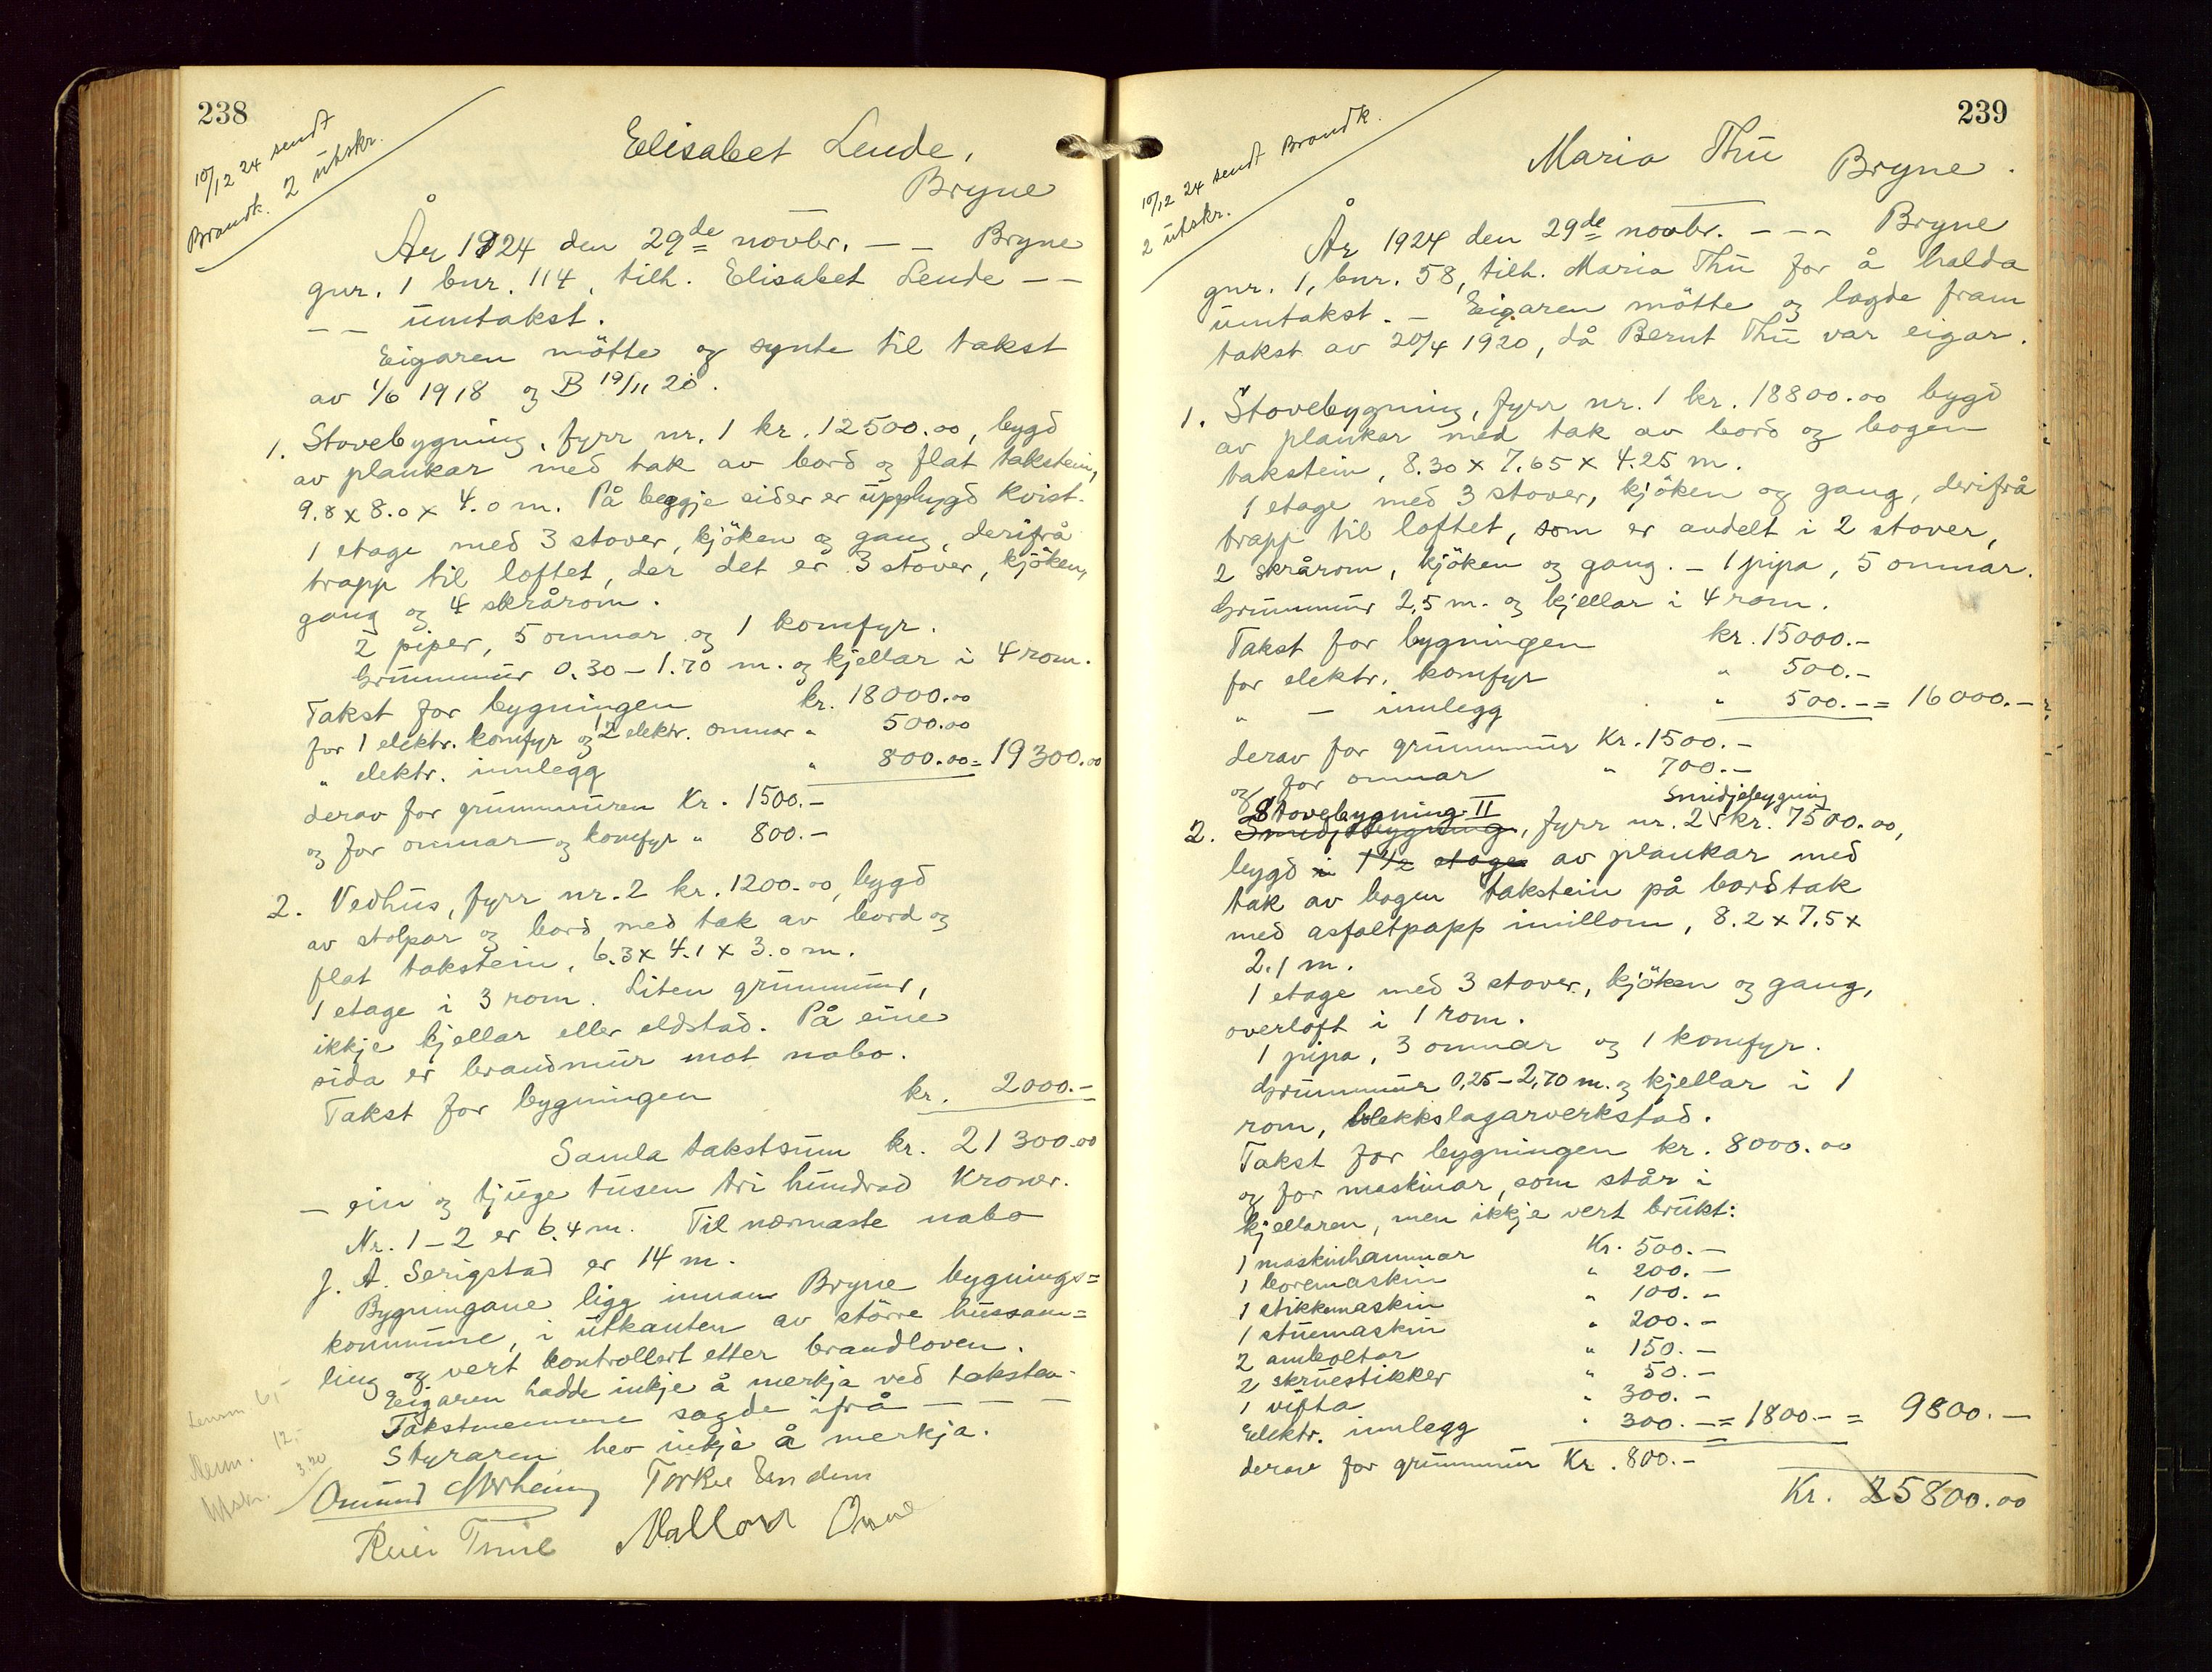 238
10/12 24 sendt
Brandk. 2 utskr.
Elisabet Lende,
Bryne
År 1924 den 29de novbr. — — Bryne
gnr. 1 bnr. 114, tilh. Elisabet Lende — —
— — umtakst.
Eigaren møtte og synte til takst
av 1/6 1918 og B 19/11 20.
1. Stovebygning, fyrr nr. 1 kr. 12500.00, bygd
av plankar med tak av bord og flat takstein,
9.8 x 8.0 x 4.0 m. På beggje sider er uppbygd kvist.
1 etage med 3 stover, kjöken og gang, derifrå
trapp til loftet, der det er 3 stover, kjöken,
gang og 4 skrårom.
2 piper, 5 omnar og 1 komfyr.
Grunnmur 0.30 – 1.70 m. og kjellar i 4 rom.
Takst for bygningen kr. 18000.00
for 1 elektr. komfyr og 2 elektr. omnar " 500.00
" elektr. innlegg " 800.00 = 19300.00
derav for grunnmuren Kr. 1500.–
og for omnar og komfyr " 800.–
2. Vedhus, fyrr nr. 2 kr. 1200.00, bygd
av stolpar og bord med tak av bord og
flat takstein, 6.3 x 4.1 x 3.0 m.
1 etage i 3 rom. Liten grunnmur,
ikkje kjellar eller eldstad. På eine
sida er brandmur mot nabo.
Takst for bygningen kr. 2000.–
Samla takstsum kr. 21300.00
– ein og tjuge tusen tri hundrad Kroner.
Nr. 1 – 2 er 6.4 m. Til nærmaste nabo
J. A. Serigstad er 14 m.
Bygningane ligg innan Bryne bygnings=
kommune, i utkanten av större hussam=
ling og vert kontrollert etter brandloven.
Eigaren hadde inkje å merkja ved taksten.
Takstmennene sagde ifrå — — —
Styraren hev inkje å merkja.
12.-
3.20
Omund
239
10/12 24 sendt Brandk.
2 utskr.
Maria Thu
Bryne.
År 1924 den 29de novbr. — — — Bryne
gnr. 1, bnr. 58, tilh. Maria Thu for å halda
umtakst. – Eigaren mötte og lagde fram
takst av 20/4 1920, då Bernt Thu var eigar.
1. Stovebygning, fyrr nr. 1 kr. 18800.00 bygd
av plankar med tak av bord og bogen
takstein, 8.30 x 7.65 x 4.25 m.
1 etage med 3 stover, kjöken og gang, derifrå
trapp til loftet, som er avdelt i 2 stover,
2 skrårom, kjöken og gang. – 1 pipa, 5 omnar.
Grunnmur 2,5 m. og kjellar i 4 rom.
Takst for bygningen kr. 15000.–
for elektr. komfyr " 500.–
" — innlegg " 500.– = 16000.–
derav for grunnmur Kr. 1500.–
og for omnar " 700.–
Stovebygning II Smidjebygning
2. Smidjebygning, fyrr nr. 2 kr. 7500.00,
bygd i 1 1/2 etage av plankar med
tak av bogen takstein på bordtak
med asfaltpapp imillom, 8.2 x 7.5 x
2.1 m.
1 etage med 3 stover, kjöken og gang,
overloft i 1 rom.
1 pipa, 3 omnar og 1 komfyr.
Grunnmur 0,25 – 2,70 m. og kjellar i 1
rom, blekkslagarverkstad.
Takst for bygningen kr. 8000.00
og for maskinar, som står i
kjellaren, men ikkje vert brukt:
1 maskinhammar Kr. 500.–
1 boremaskin " 200.–
1 stikkemaskin " 100.–
1 stuemaskin " 200.–
2 amboltar " 150.–
2 skruestikker " 50.–
1 vifta " 300.–
Elektr. innlegg " 300.– = 1800.– = 9800.–
derav for grunnmur Kr. 800.–
Kr. 25800.00